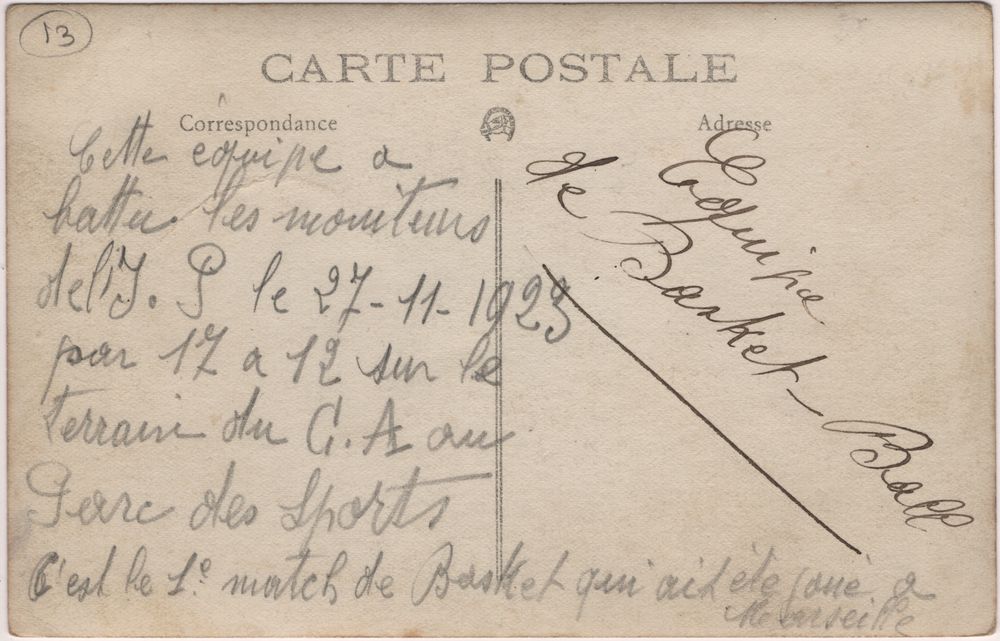 13
CARTE POSTALE
Correspondance
Cette équipe a
battu les moniteurs
de l'I. P le 27-11-1923
par 17 a 12 sur le
terrain du C. A au
Parc des Sports
C'est le 1e match de Basket qui ait été joué a
Marseille
Adresse
Equipe
de Basket-Ball